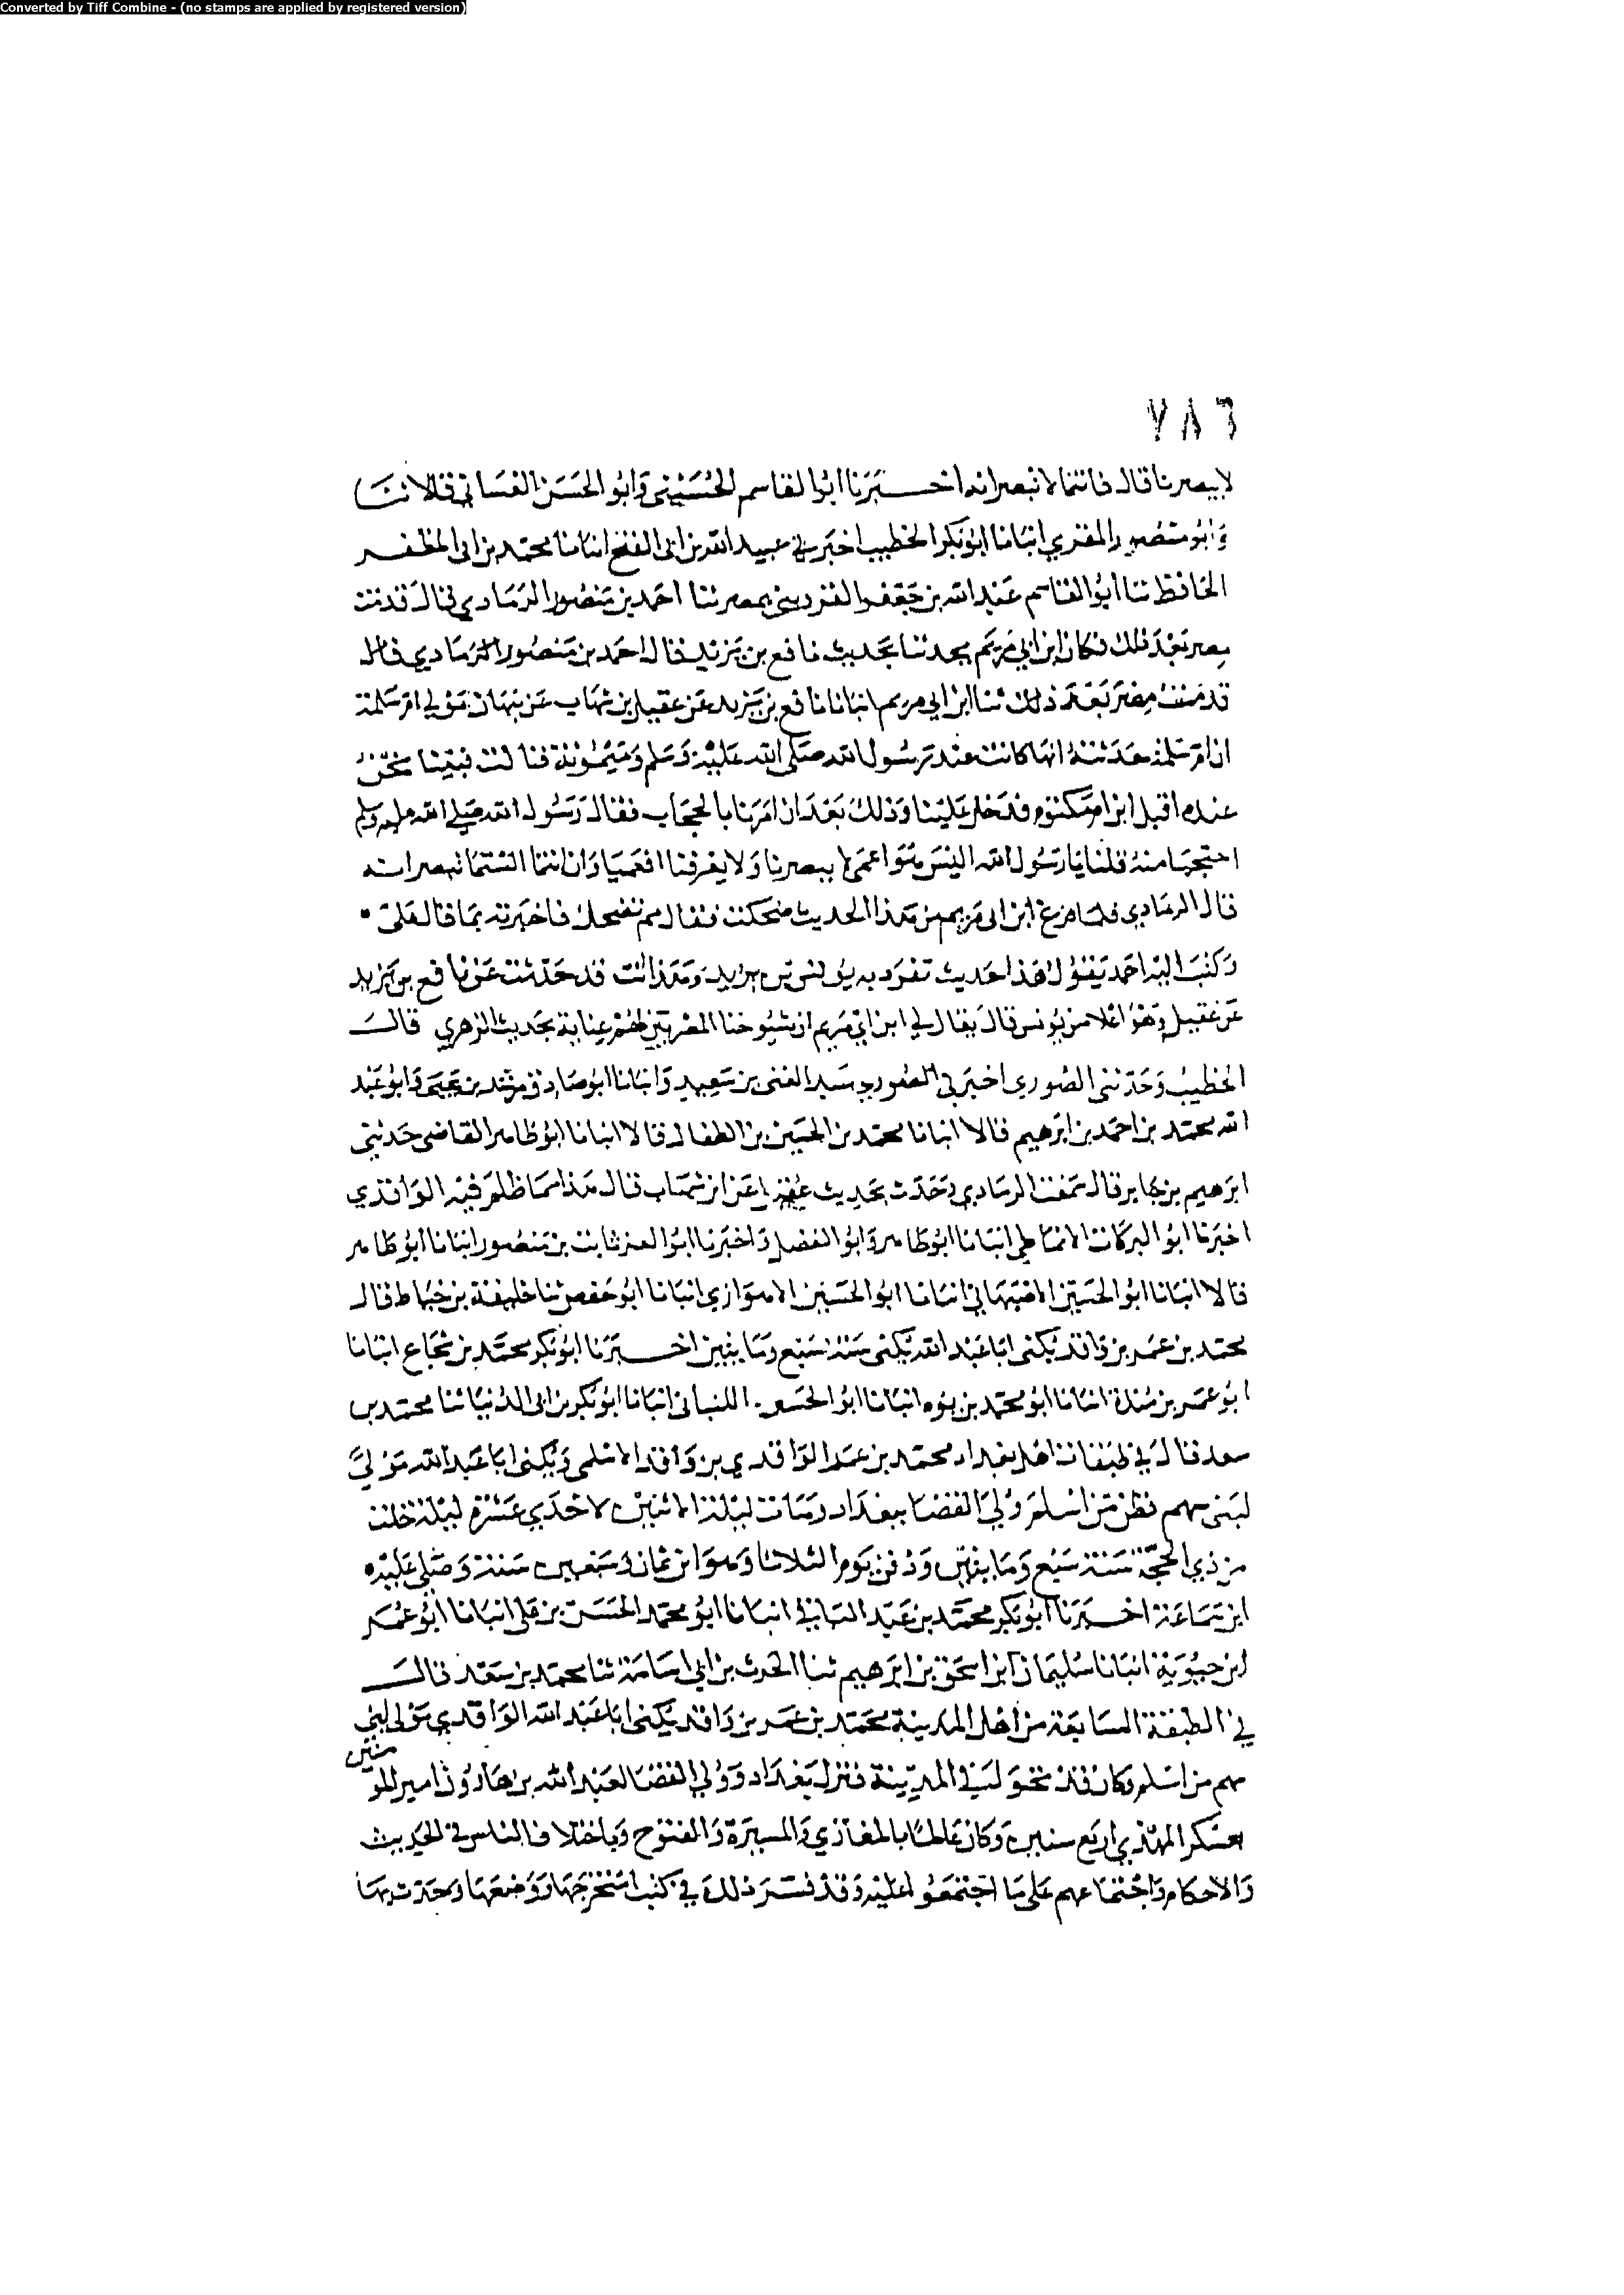 Converted by Tiff Combine - (no stamps are applied by registered version)
٧٨٦
لا يبصرنا قال فانتما لا تبصرانه اخــبرنا ابو القاسم الحسيني وابو الحسن الغساني قالا ثنا
وابو منصور المقري انبانا ابو بكر الخطيب اخبرني عبيد الله بن ابي الفتح انبانا محمد بن المظفر
الحافظ ثنا ابو القاسم عبد الله بن جعفر القزويني بمصر ثنا احمد بن منصور الرمادي قال قدمت
مصر بعد ذلك فكان ابن ابي مريم يحدثنا بحديث نافع بن يزيد فقال احمد بن منصور الرمادي قال
قدمت مصر بعد ذلك ثنا ابن ابي مريم انبانا نافع بن يزيد عن عقيل بن شهاب عن نبهان مولى ام سلمة
ان ام سلمة حدثته انها كانت عند رسول الله صلى الله عليه وسلم وميمونة قالت فبينا نحن
عنده اقبل ابن ام مكتوم فدخل علينا وذلك بعد ان امرنا بالحجاب فقال رسول الله صلى الله عليه وسلم
احتجبا منه قلنا يا رسول الله اليس هو اعمى لا يبصرنا ولا يعرفنا افعميا وان انتما الستما تبصرانه
قال الرمادي فلما فرغ ابن ابي مريم من هذا الحديث ضحكت فقال مم تضحك فاخبرته بما قال علي
وكتب اليه احمد يقول هذا حديث تفرد به يونس بن يزيد وهذا انت قد حدثت عن نافع بن يزيد
عن عقيل وهو اعلا من يونس قال فقال لي ابن ابي مريم ان شيوخنا المصريين لهم عناية بحديث الزهري قال
الخطيب وحدثني الصوري اخبرني عبد الغني بن سعيد وانبانا ابو صادق مرشد بن يحيى وابو عبد
الله محمد بن احمد بن ابرهيم قالا انبانا محمد بن الحسين بن الطفال قالا انبانا ابو طاهر القاضي حدثني
ابرهيم بن جابر قال سمعت الرمادي وحدث بحديث عقيل عن ابن شهاب قال هذا مما ظلم فيه الواقدي
اخبرنا ابو البركات الانماطي انبانا ابو طاهر وابو الفضل واخبرنا ابو العز ثابت بن منصور انبانا ابو طاهر
قالا انبانا ابو الحسين الاصبهاني انبانا ابو الحسين الاهوازي انبانا ابو حفص ثنا خليفة بن خياط قال
محمد بن عمر بن واقد يكنى ابا عبد الله يكنى سنة سبع ومايتين اخــبرنا ابو بكر محمد بن شجاع انبانا
ابو عمر بن مندة انبانا ابو محمد بن يوه انبانا ابو الحسن اللنباني انبانا ابو بكر بن ابي الدنيا ثنا محمد بن
سعد قال في طبقات اهل بغداد محمد بن عمر الواقدي بن واقد الاسلمي ويكنى ابا عبد الله مولى
لبني سهم بطن من اسلم ولي القضا ببغداد ومات ليلة الاثنين لاحدي عشرة ليلة خلت
من ذي الحجة سنة سبع ومايتين ودفن يوم الثلاثا وهو ابن ثمان وسبعين سنة وصلى عليه
ابن سماعة اخــبرنا ابو بكر محمد بن عبد الباقي انبانا ابو محمد الحسن بن علي انبانا ابو عمر
ابن حيوية انبانا سليمان ابن اسحق بن ابرهيم ثنا الحرث بن ابي اسامة ثنا محمد بن سعد قال
في الطبقة السابعة من اهل المدينة محمد بن عمر بن واقد يكنى ابا عبد الله الواقدي مولى لبني
سهم من اسلم وكان قد تحول من المدينة فنزل بغداد وولي القضا لعبد الله بن هارون امير المومنين
بعسكر المهدي اربع سنين وكان عالما بالمغازي والسيرة والفتوح وباختلاف الناس في الحديث
والاحكام واجتماعهم على ما اجتمعوا عليه وقد فسر ذلك في كتب استخرجها ووضعها وحدث بها